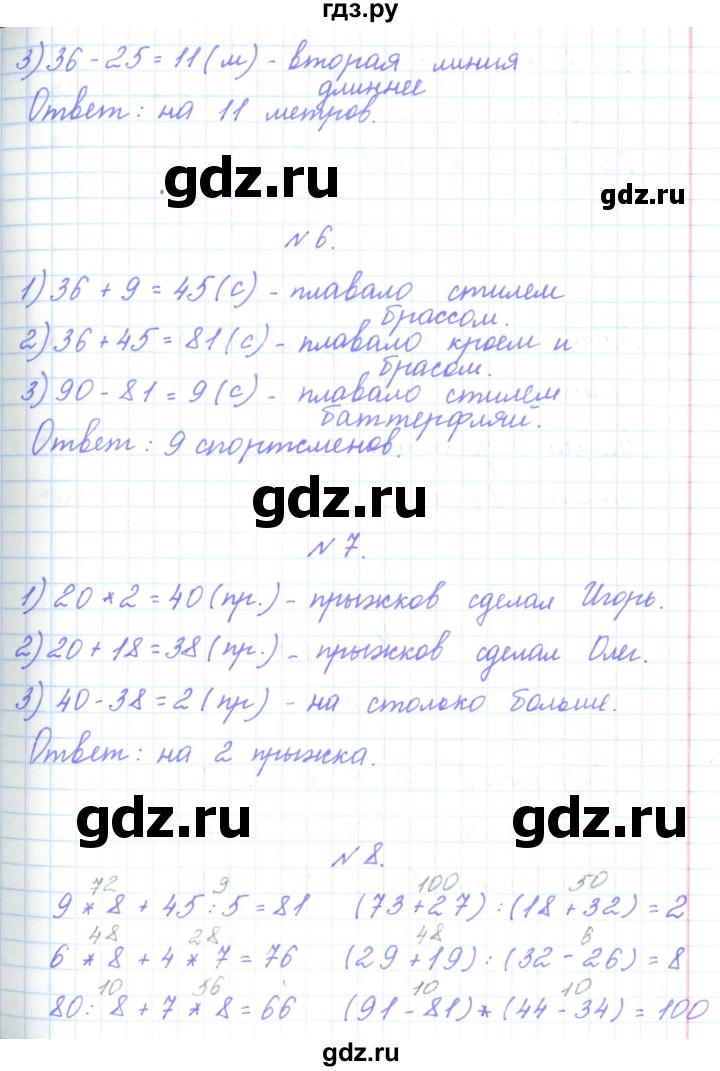 гдз.ру
3) 36 - 25 = 11 (м) - вторая линия
длиннее
Ответ: на 11 метров.
gdz.ru
gdz.ru
N 6.
1) 36 + 9 = 45 (с) - плавало стилем
брассом.
2) 36 + 45 = 81 (с) - плавало кроем и
брасом.
3) 90 - 81 = 9 (с) - плавало стилем
баттерфляй.
Ответ: 9 спортсменов.
gdz.ru
N 7.
1) 20 * 2 = 40 (пр.) - прыжков сделал Игорь.
2) 20 + 18 = 38 (пр.) - прыжков сделал Олег.
3) 40 - 38 = 2 (пр) - на столько больше.
Ответ: на 2 прыжка.
gdz.ru
gdz.ru
N 8.
72 9 100 50
9 * 8 + 45 : 5 = 81 (73 + 27) : (18 + 32) = 2
48 28 48 6
6 * 8 + 4 * 7 = 76 (29 + 19) : (32 - 26) = 8
10 56 10 10
80 : 8 + 7 * 8 = 66 (91 - 81) * (44 - 34) = 100
gdz.ru